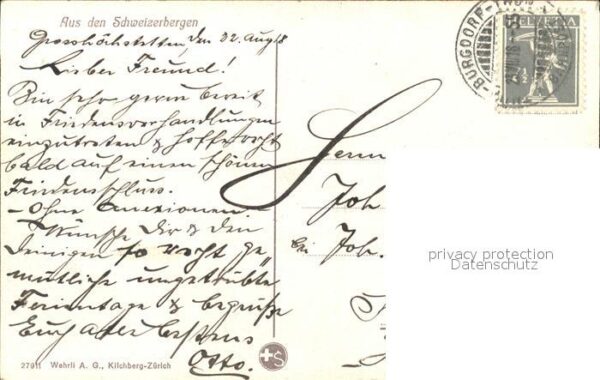 Aus den Schweizerbergen
Grosshöchstetten, den 22. Aug 18
Lieber Freund!
Bin sehr gerne bereit
in Friedensverhandlungen
einzutreten & hoffe recht
bald auf einen schönen
Friedensschluss.
- Ohne Anexionen.
Wünsche Dir & den
Deinigen so recht ge-
mütliche ungetrübte
Ferientage & begrüsse
Euch alle bestens
Otto.
27911 Wehrli A. G., Kilchberg-Zürich
HELVETIA
BURGDORF-THUN
Herrn
Joh
bei Joh.
privacy protection
Datenschutz